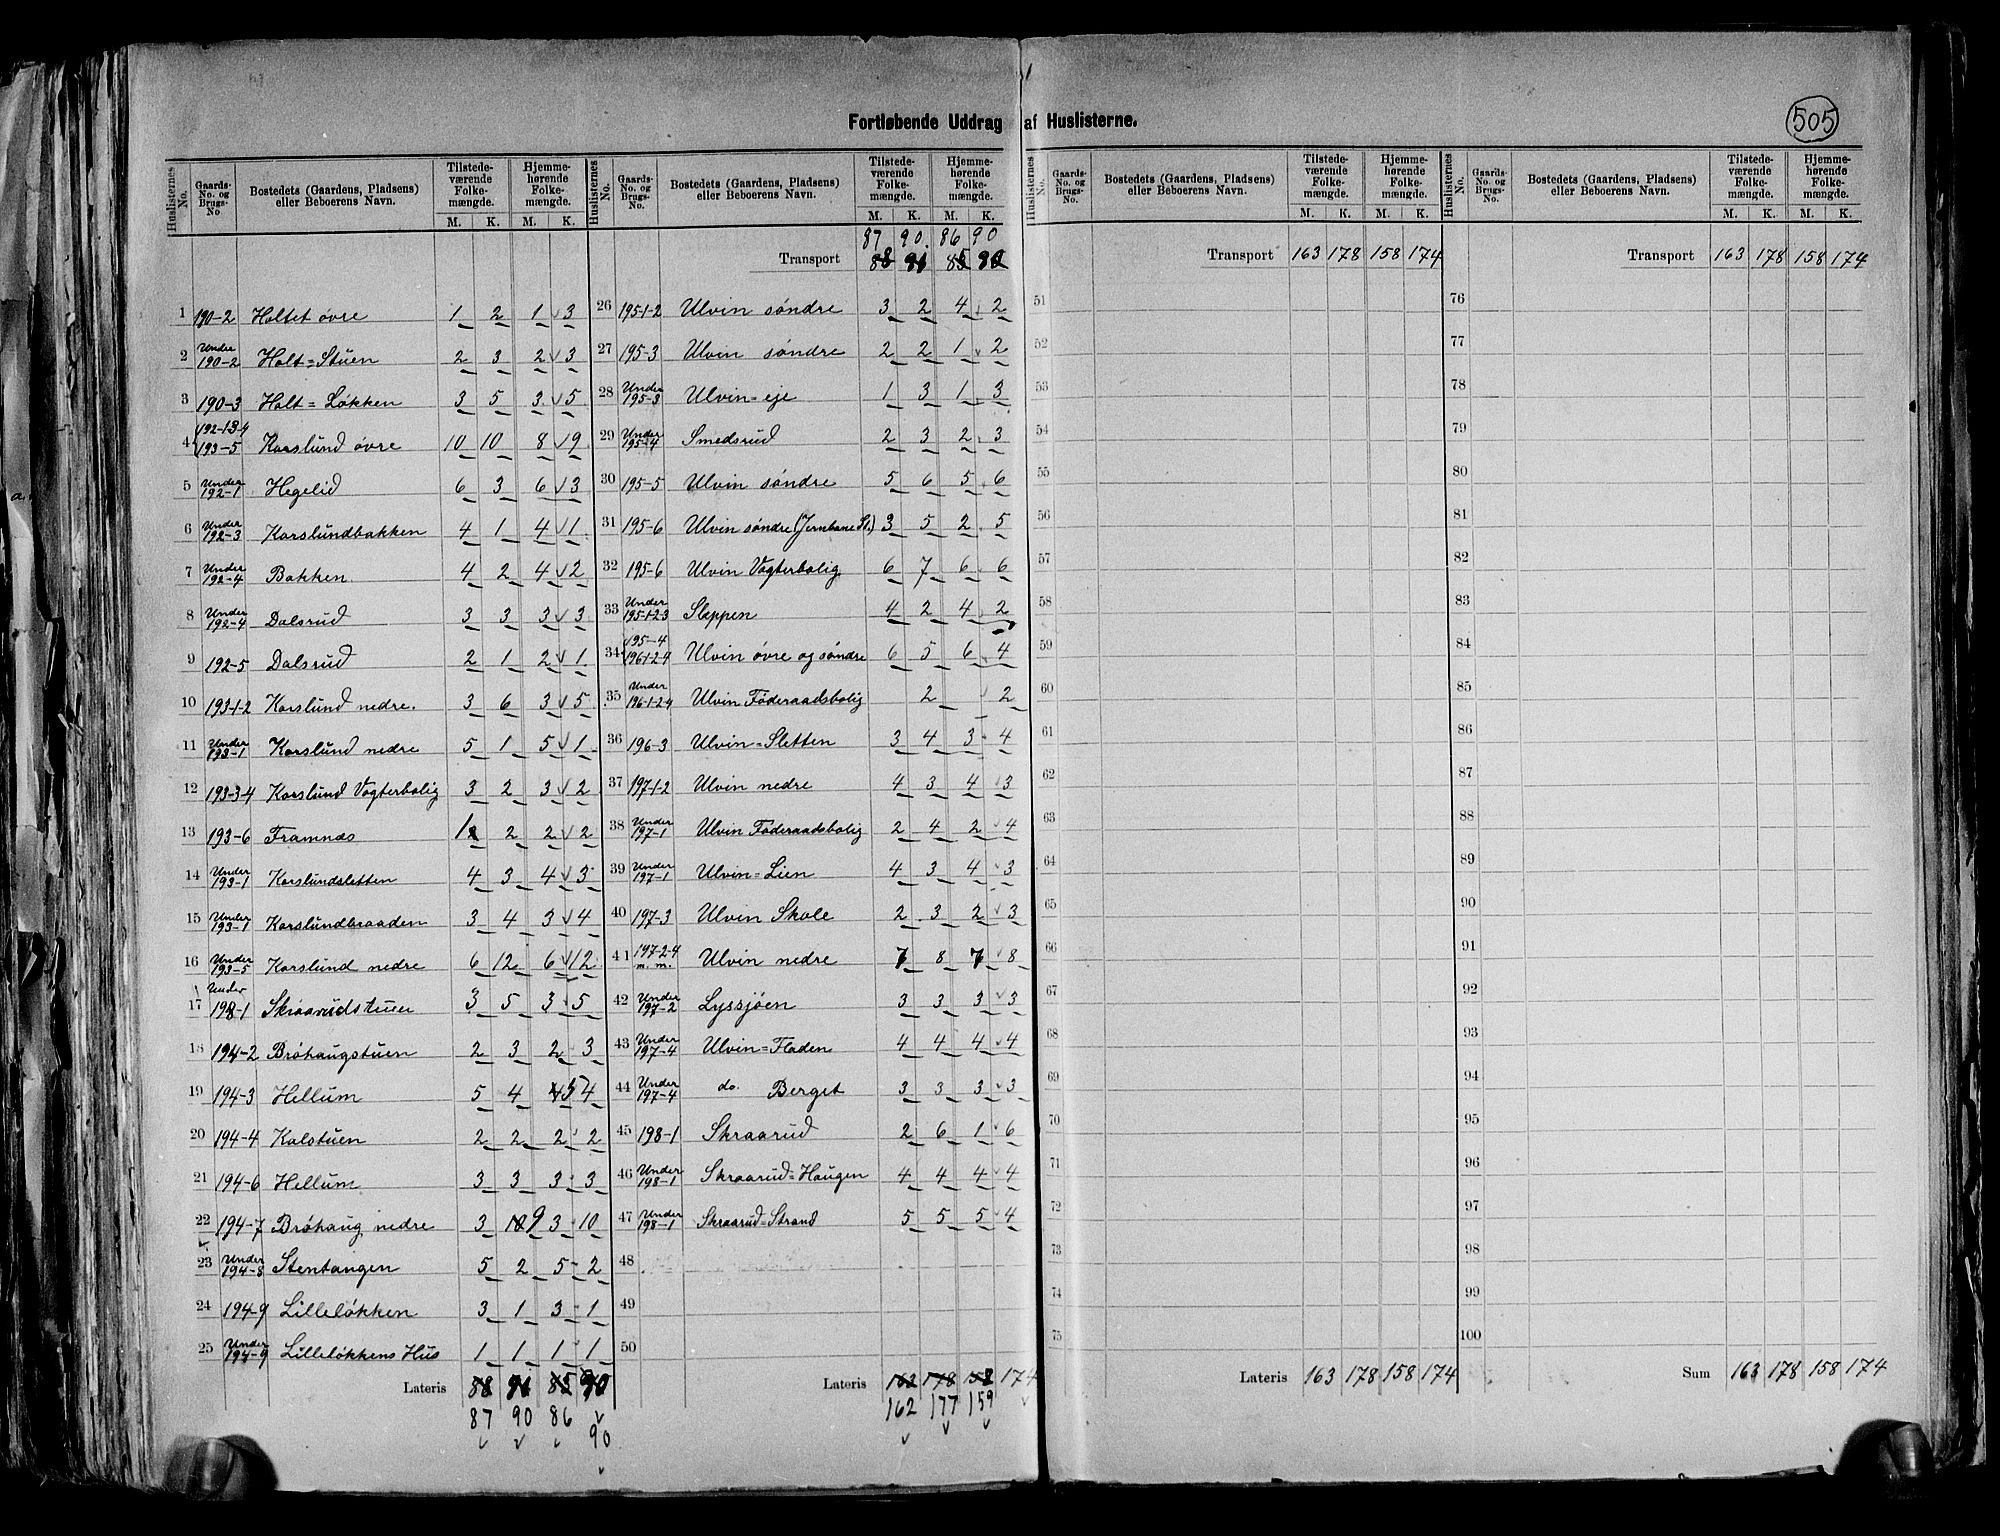 505
Fortløbende Uddrag af Huslisterne.
Huslisternes No. Gaards-No. og Brugs-No. Bostedets (Gaardens, Pladsens) eller Beboerens Navn. Tilstedeværende Folkemængde. M. K. Hjemmehørende Folkemængde. M. K.
1 190-2 Holtet øvre 1 2 1 3
2 Under 190-2 Holt=Stuen 2 3 2 3
3 190-3 Holt=Løkken 3 5 3 5
4 192-1-3-4 193-5 Korslund øvre 10 10 8 9
5 Under 192-1 Hegelid 6 3 6 3
6 Under 192-3 Korslundbakken 4 1 4 1
7 Under 192-4 Bakken 4 2 4 2
8 Under 192-4 Dalsrud 3 3 3 3
9 192-5 Dalsrud 2 1 2 1
10 193-1-2 Korslund nedre. 3 6 3 5
11 Under 193-1 Korslund nedre 5 1 5 1
12 193-3-4 Korslund Vogterbolig 3 2 3 2
13 193-6 Framnæs 1 2 2 2
14 Under 193-1 Korslundsletten 4 3 4 3
15 Under 193-1 Korslundbraaden 3 4 3 4
16 Under 193-5 Korslund nedre 6 12 6 12
17 Under 198-1 Skraarudstuen 3 5 3 5
18 194-2 Brøhaugstuen 2 3 2 3
19 194-3 Hellum 5 4 5 4
20 194-4 Kalstuen 2 2 2 2
21 194-6 Hellum 3 3 3 3
22 194-7 Brøhaug nedre 3 10 9 3 10
23 Under 194-8 Stentangen 5 2 5 2
24 194-9 Lilleløkken 3 1 3 1
25 Under 194-9 Lilleløkkens Hus 1 1 1 1
Lateris 88 91 85 90
87 90 86
90
Huslisternes No. Gaards-No. og Brugs-No. Bostedets (Gaardens, Pladsens) eller Beboerens Navn. Tilstedeværende Folkemængde. M. K. Hjemmehørende Folkemængde. M. K.
87 90. 86 90
Transport 88 91 85 90
26 195-1-2 Ulvin søndre 3 2 4 2
27 195-3 Ulvin søndre 2 2 1 2
28 Under 195-3 Ulvin=eje 1 3 1 3
29 Under 195-4 Smedsrud 2 3 2 3
30 195-5 Ulvin søndre 5 6 5 6
31 195-6 Ulvin søndre (Jernbane St.) 3 5 2 5
32 195-6 Ulvin Vogterbolig 6 7 6 6
33 Under 195-1-2-3 Sleppen 4 2 4 2
34 195-4 196-1-2-4 Ulvin øvre og søndre 6 5 6 4
35 Under 196-1-2-4 Ulvin Føderaadsbolig 2 2
36 196-3 Ulvin=Sletten 3 4 3 4
37 197-1-2 Ulvin nedre 4 3 4 3
38 Under 197-1 Ulvin Føderaadsbolig 2 4 2 4
39 Under 197-1 Ulvin=Lien 4 3 4 3
40 197-3 Ulvin Skole 2 3 2 3
41 197-2-4 m.m. Ulvin nedre 7 8 7 8
42 Under 197-2 Lyssjøen 3 3 3 3
43 Under 197-4 Ulvin=Fladen 4 4 4 4
44 Under 197-4 do. Berget 3 3 3 3
45 198-1 Skraarud 2 6 1 6
46 Under 198-1 Skraarud=Haugen 4 4 4 4
47 Under 198-1 Skraarud=Strand 5 5 5 4
48
49
50
Lateris 163 178 158 174
162 177 159
Huslisternes No. Gaards-No. og Brugs-No. Bostedets (Gaardens, Pladsens) eller Beboerens Navn. Tilstedeværende Folkemængde. M. K. Hjemmehørende Folkemængde. M. K.
Transport 163 178 158 174
51
52
53
54
55
56
57
58
59
60
61
62
63
64
65
66
67
68
69
70
71
72
73
74
75
Lateris 163 178 158 174
Huslisternes No. Gaards-No. og Brugs-No. Bostedets (Gaardens, Pladsens) eller Beboerens Navn. Tilstedeværende Folkemængde. M. K. Hjemmehørende Folkemængde. M. K.
Transport 163 178 158 174
76
77
78
79
80
81
82
83
84
85
86
87
88
89
90
91
92
93
94
95
96
97
98
99
100
Sum 163 178 158 174